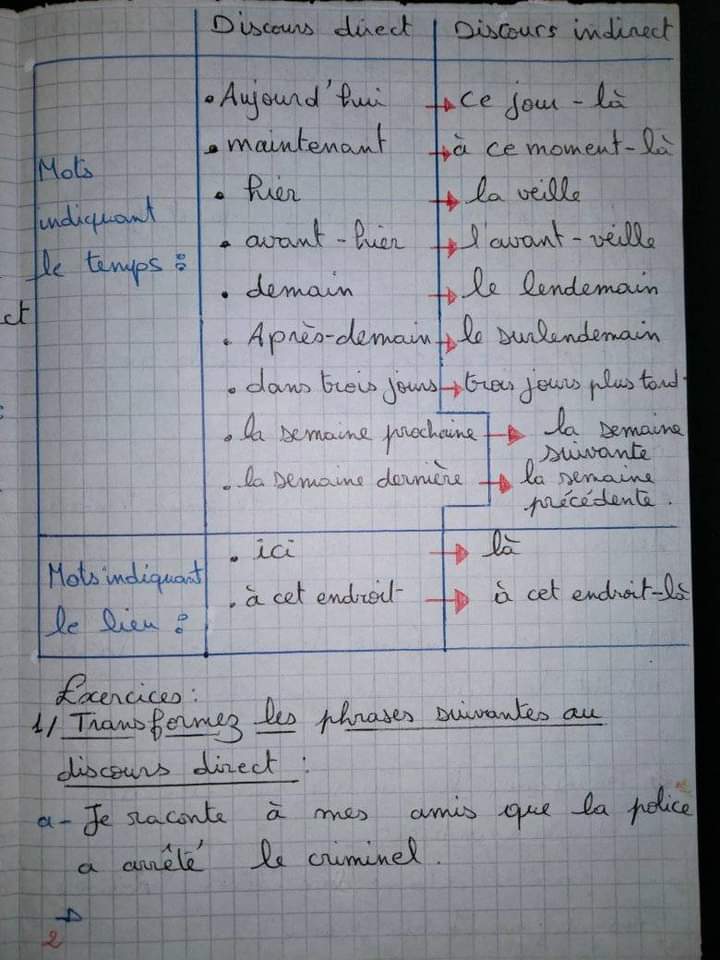 Discours direct Discours indirect
• Aujourd'hui → ce jour-là
• maintenant → à ce moment-là
Mots
• hier → la veille
indiquant
• avant-hier → l'avant-veille
le temps :
• demain → le lendemain
ct
• Après-demain → le surlendemain
• dans trois jours → trois jours plus tard.
• la semaine prochaine → la semaine
suivante
• la semaine dernière → la semaine
précédente.
• ici → là
Mots indiquant
• à cet endroit → à cet endroit-là
le lieu :
Exercices :
1/ Transformez les phrases suivantes au
discours direct :
a- Je raconte à mes amis que la police
a arrêté le criminel.
→
2